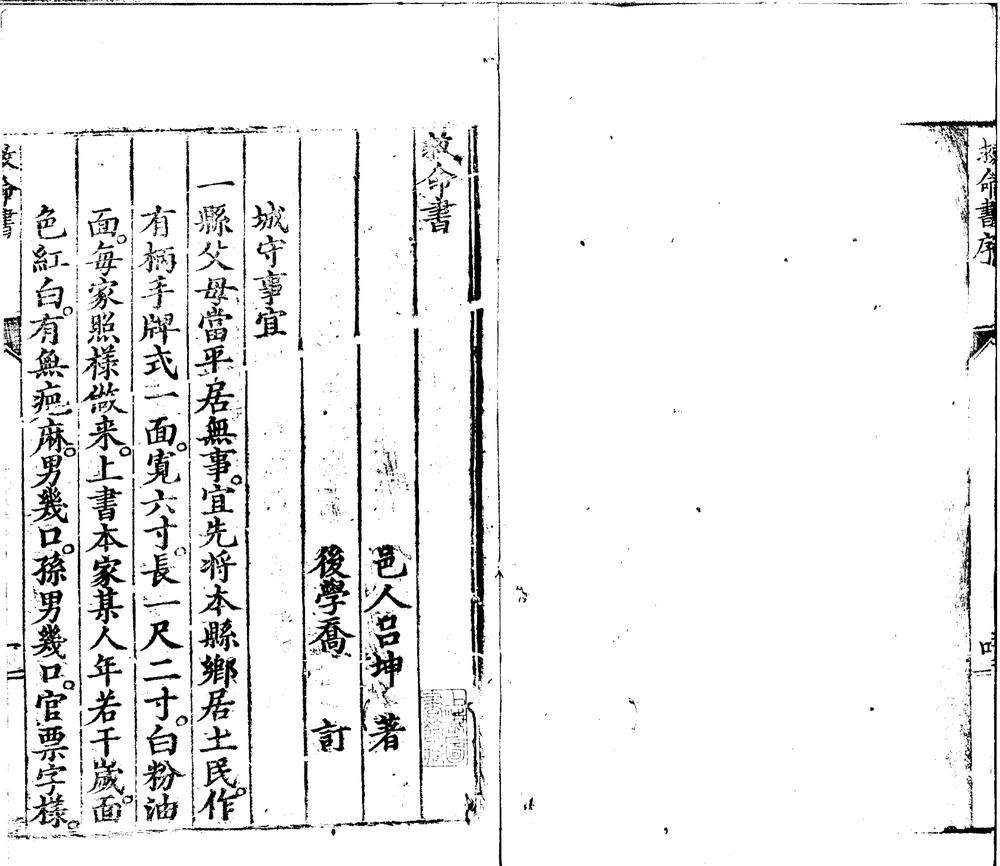 救命書序
救命書
邑人呂坤 著
後學喬 訂
城守事宜
一縣父母當平居無事。宜先将本縣鄉居士民。作
有柄手牌式一面。寬六寸。長一尺二寸。白粉油
面。每家照樣做来。上書本家某人年若干歲。面
色紅白。有無疤麻。男幾口。孫男幾口。官票字樣。
救命書
一